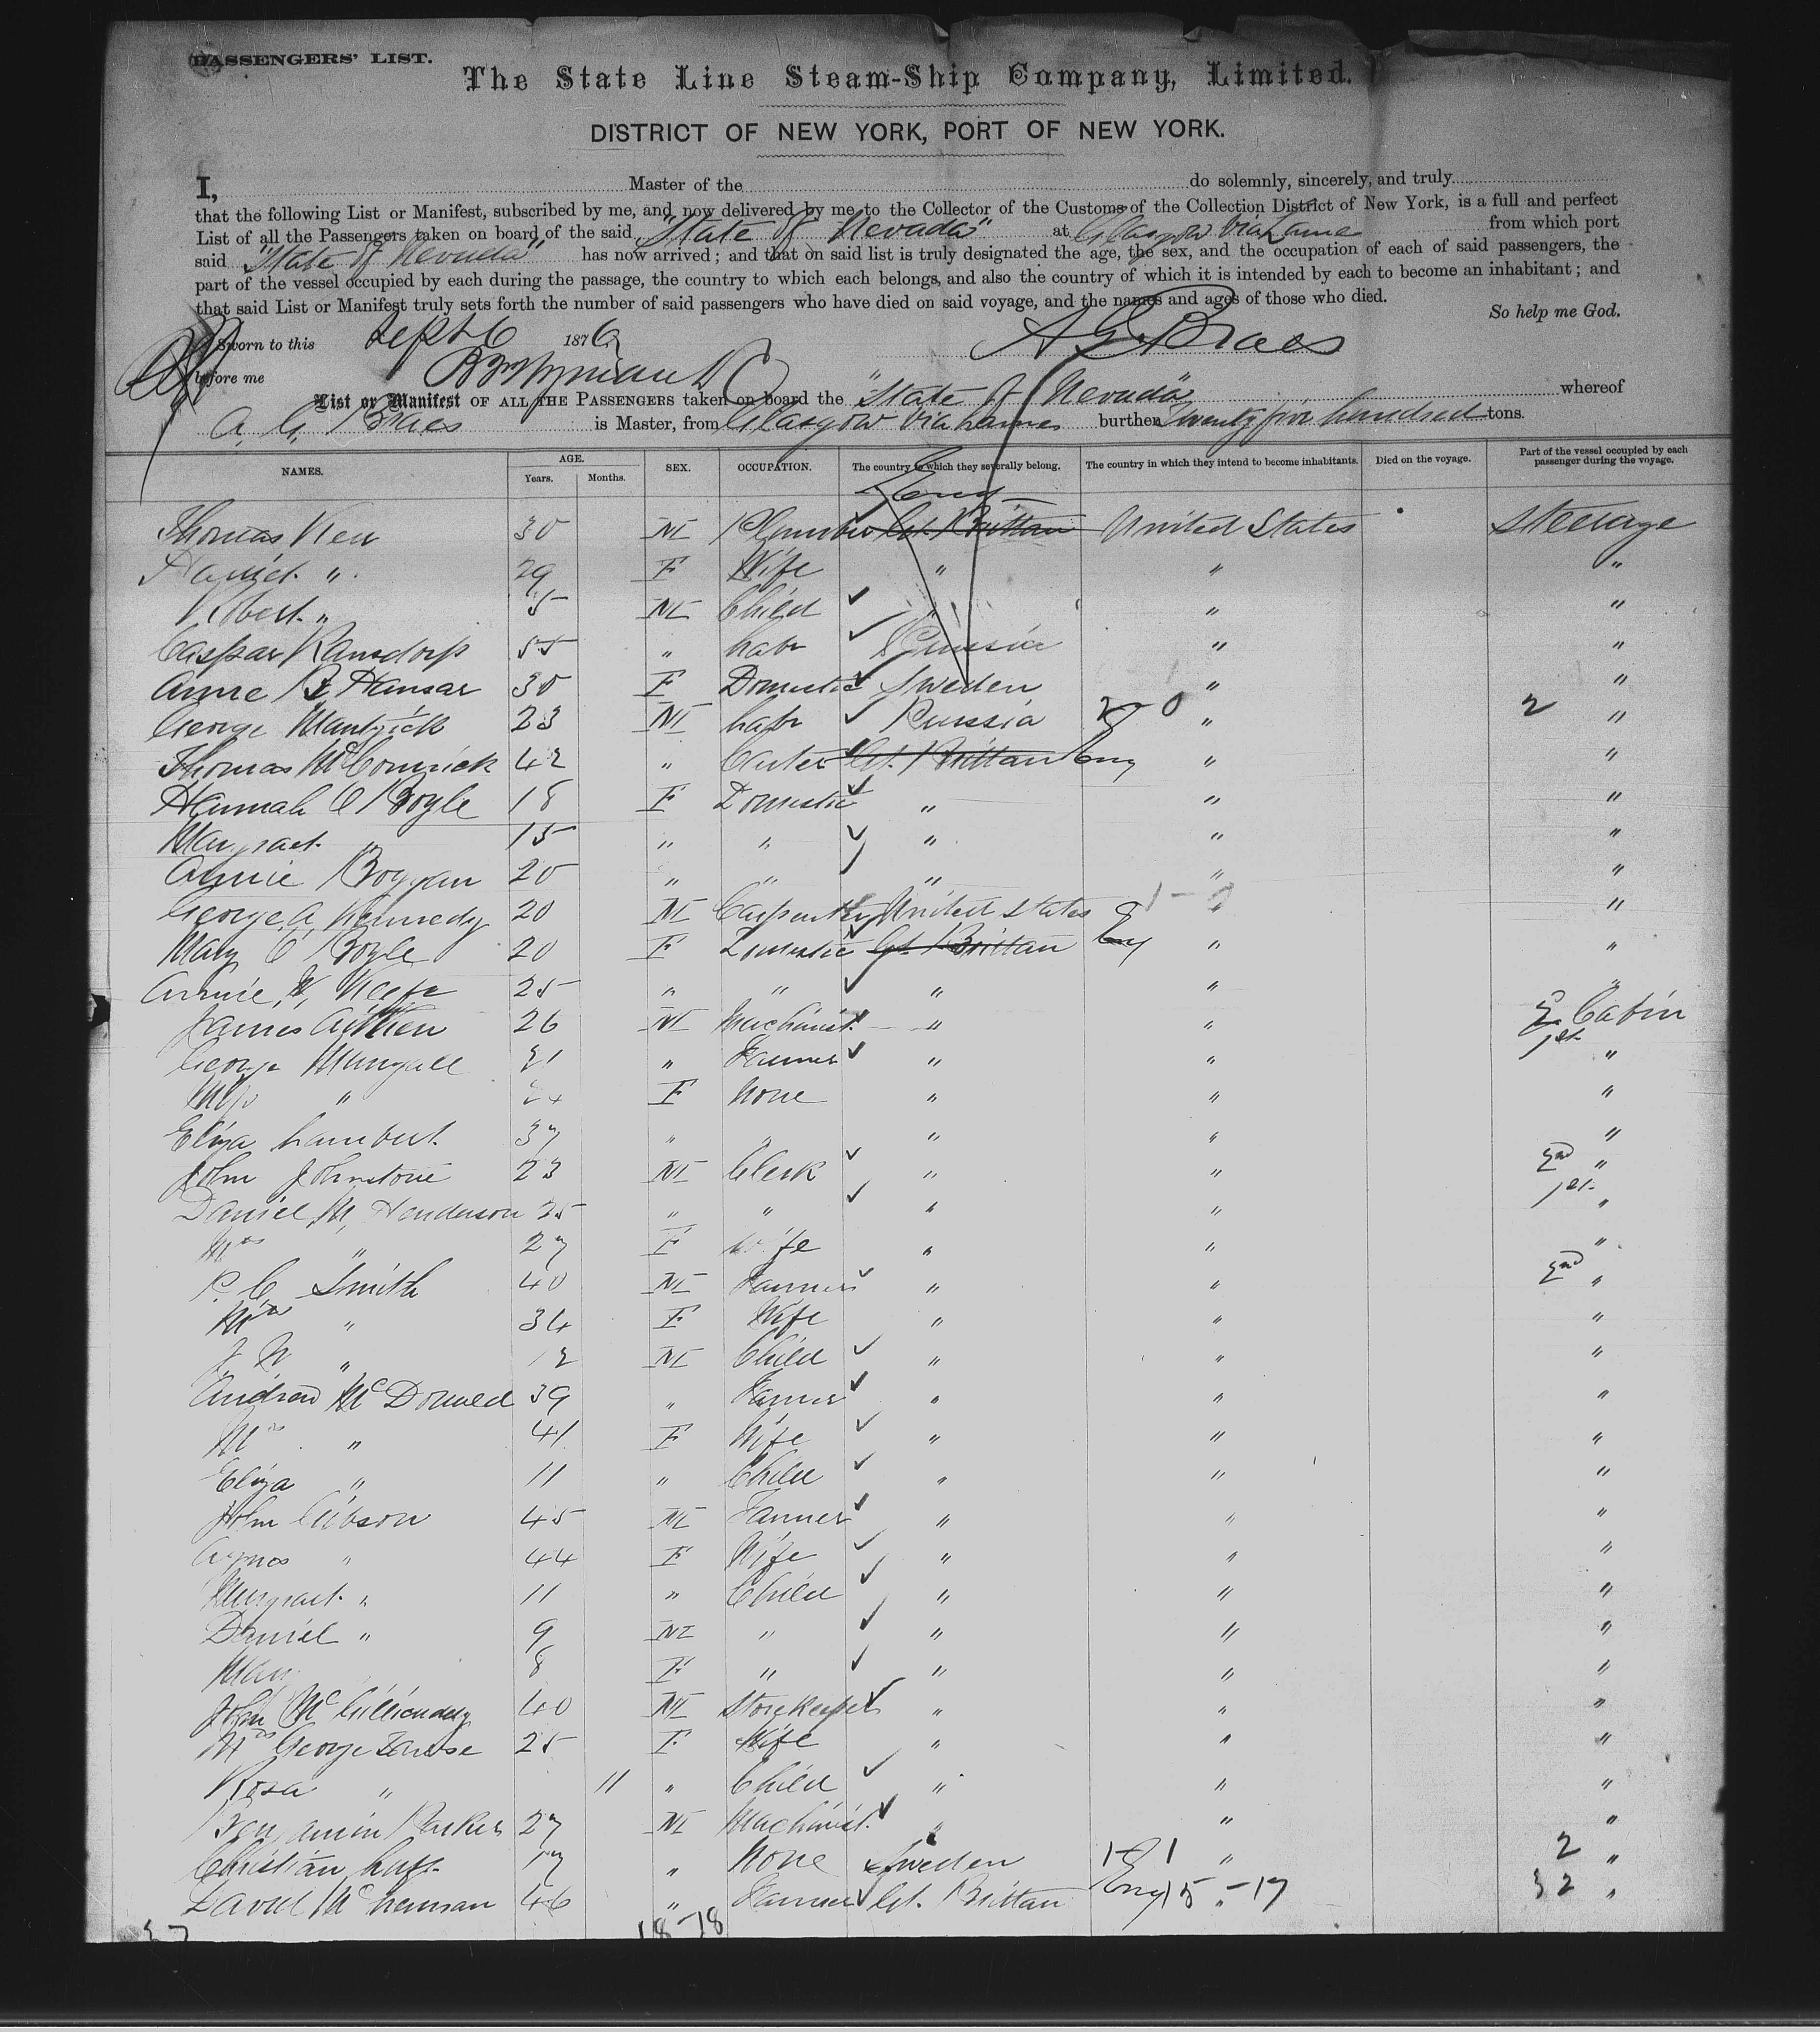 PASSENGERS' LIST.
The State Line Steam-Ship Company, Limited.
DISTRICT OF NEW YORK, PORT OF NEW YORK.
I, Master of the do solemnly, sincerely, and truly
that the following List or Manifest, subscribed by me, and now delivered by me to the Collector of the Customs of the Collection District of New York, is a full and perfect
List of all the Passengers taken on board of the said "State of Nevada" at Glasgow via Larne from which port
said "State of Nevada" has now arrived; and that on said list is truly designated the age, the sex, and the occupation of each of said passengers, the
part of the vessel occupied by each during the passage, the country to which each belongs, and also the country of which it is intended by each to become an inhabitant; and
that said List or Manifest truly sets forth the number of said passengers who have died on said voyage, and the names and ages of those who died.
So help me God.
Sworn to this Sept 6 1876 A G Braes
before me
List or Manifest OF ALL THE PASSENGERS taken on board the "State of Nevada" whereof
A. G. Braes is Master, from Glasgow via Larne burthen Twenty five hundred tons.
NAMES. AGE. Years. Months. SEX. OCCUPATION. The country to which they severally belong. The country in which they intend to become inhabitants. Died on the voyage. Part of the vessel occupied by each passenger during the voyage.
Eng
Thomas Kew 30 M Plumber Gt. Brittan United States Steerage
Harriet " 29 F Wife " " "
Albert " 5 M Child " " "
Caspar 55 " Labr " "
Anne B Hansar 30 F Domestic Sweden " "
George 23 M Labr Russia 2-0 " 2 "
Thomas McCormick 42 " Gt. Brittan Eng " "
Hannah O'Boyle 18 F Domestic " " "
Margraet " 15 " " " " "
Annie Boggan 20 " " " " "
George A. Kennedy 20 M Carpenter United States 1- " "
Mary O'Boyle 20 F Domestic Gt. Brittan Eng " "
Annie Keefe 25 " " " " "
James Aitken 26 M Machinist " " 2 Cabin
George Mungall 31 " Farmer " " 1st "
" 24 F None " " "
Eliza Lambert 37 " " " " "
John Johnstone 23 M Clerk " " 2nd "
Daniel M. Henderson 25 " " " " 1st "
Mrs " 27 F Wife " " "
P. C. Smith 40 M Farmer " " 2nd "
Mrs " 34 F Wife " " "
J. W " 12 M Child " " "
Andrew McDonald 39 " Farmer " " "
Mrs " 41 F Wife " " "
Eliza " 11 " Child " " "
John Gibson 45 M Farmer " " "
Agnes " 44 F Wife " " "
Margraet " 11 " Child " " "
Daniel " 9 M " " " "
Mary 8 F " " " "
John 40 M Storekeeper " " "
Mrs George 25 F Wife " " "
Rosa " 11 " Child " " "
Benjamin Parker 27 M Machinist " " "
Christian 17 " None Sweden 1-1 " 2 "
David McLennan 46 " Farmer Gt. Brittan Eng 15 " -17 32 "
37 18-18